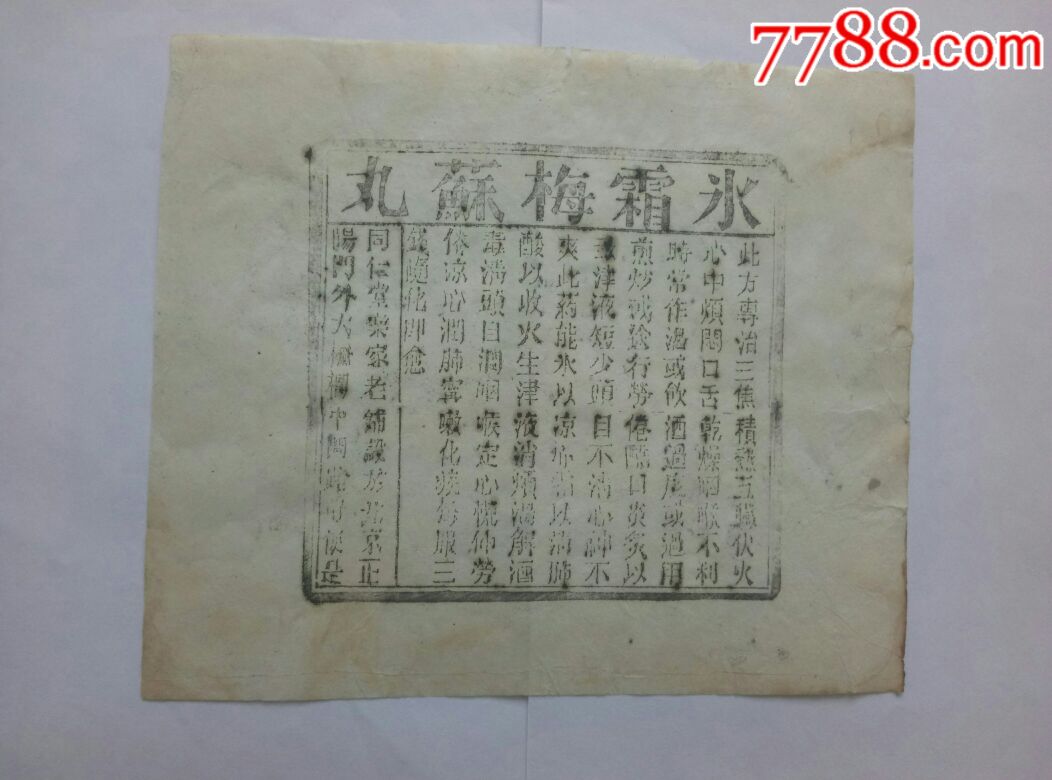 7788.com
氷霜梅蘇丸
此方專治三焦積熱五臟伏火
心中煩悶口舌乾燥咽喉不利
時常作渴或飲酒過度或過用
煎炒或途行勞倦酷日炎炙以
津液短少頭目不清心神不
爽此葯能氷以凉心霜以清肺
酸以收火生津液消煩渴解酒
毒清頭目潤咽喉定心慌伸勞
倦凉心潤肺寧嗽化痰每服三
錢隨化即愈
同仁堂樂家老鋪設於北京正
陽門外大柵欄中間路南便是